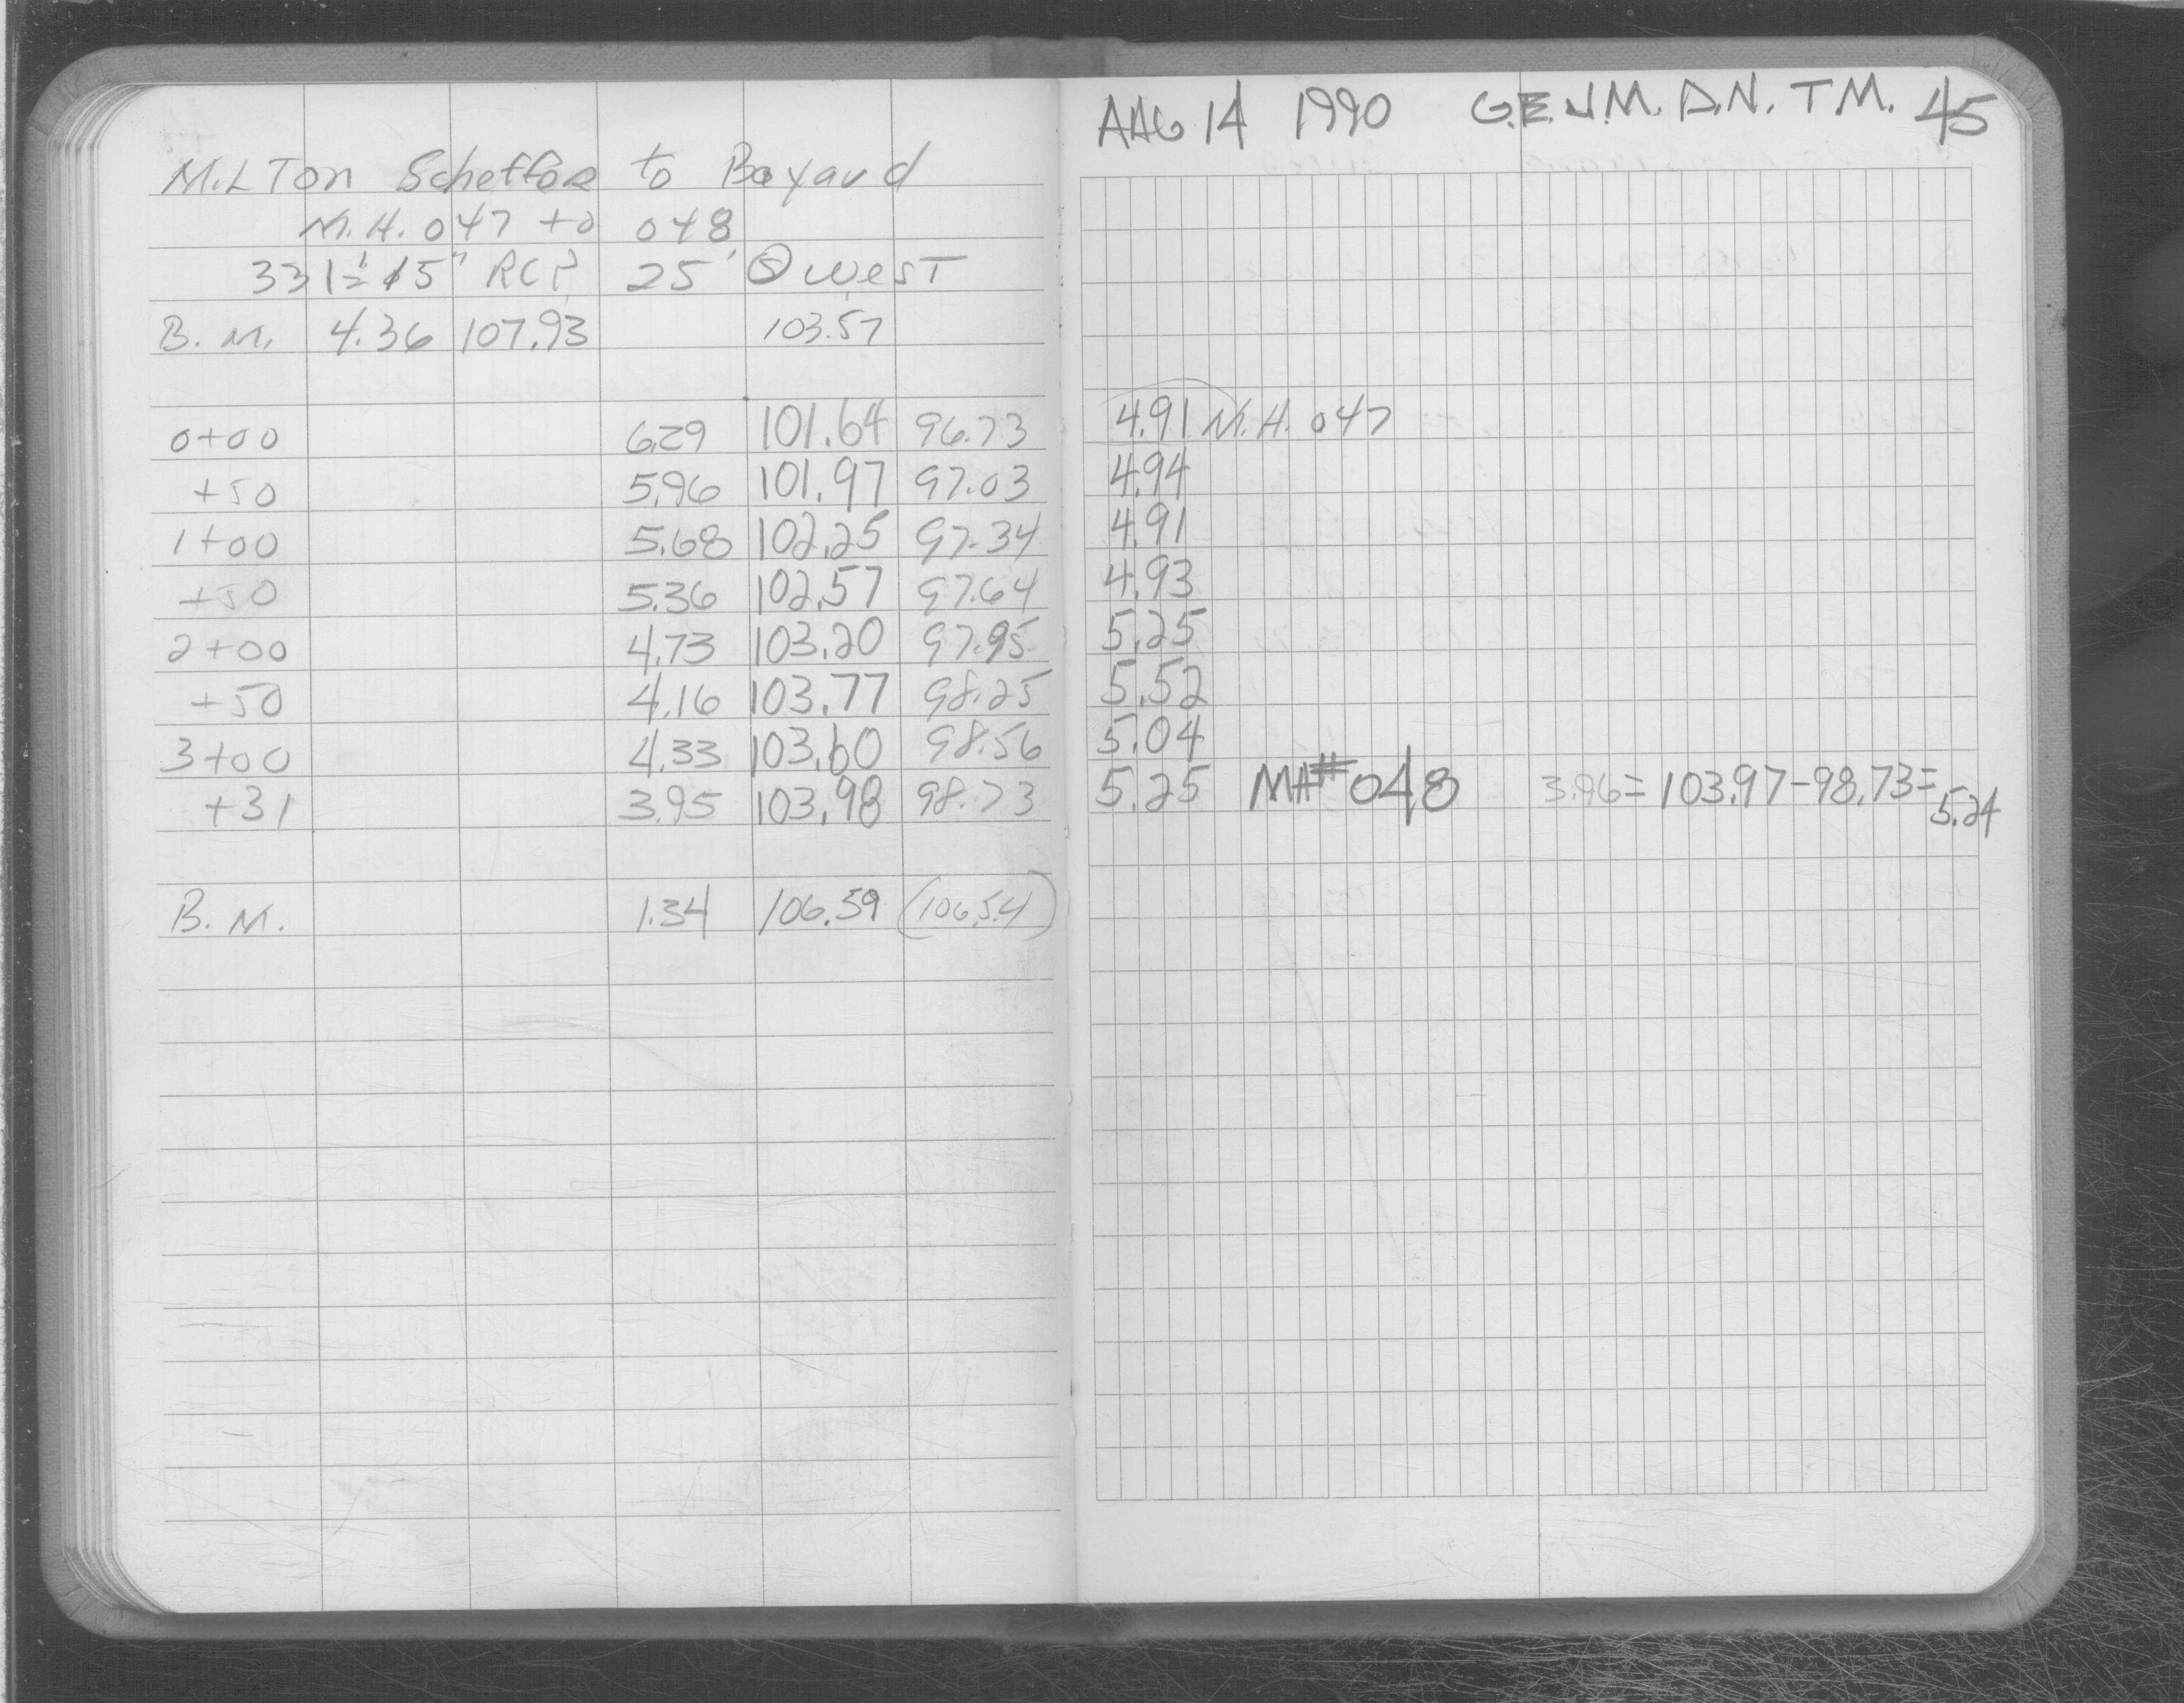 M.LTon Scheffoe to Bayaud
M.H. 047 to 048
331' 15" RCP 25' Ⓢ WesT
B.M. 4.36 107.93 103.57
0+00 6.29 101.64 96.73
+50 5.96 101.97 97.03
1+00 5.68 102.25 97.34
+50 5.36 102.57 97.64
2+00 4.73 103.20 97.95
+50 4.16 103.77 98.25
3+00 4.33 103.60 98.56
+31 3.95 103.98 98.73
B.M. 1.34 106.59 (106.54)
AUG 14 1990 G.E. J.M. D.N. T M. 45
4.91 M.H. 047
4.94
4.91
4.93
5.25
5.52
5.04
5.25 MH# 048 3.96 = 103.97-98.73=
5.24